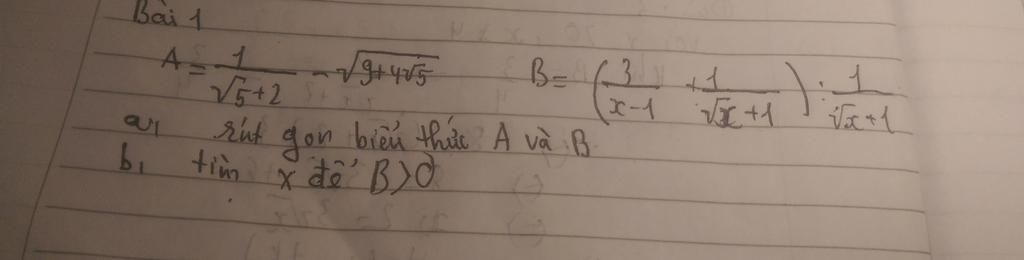 Bài 1
A = 1/(√5+2) - √(9+4√5)    B = (3/(x-1) + 1/(√x+1)) : 1/(√x+1)
a, rút gọn biểu thức A và B
b, tìm x để B>0